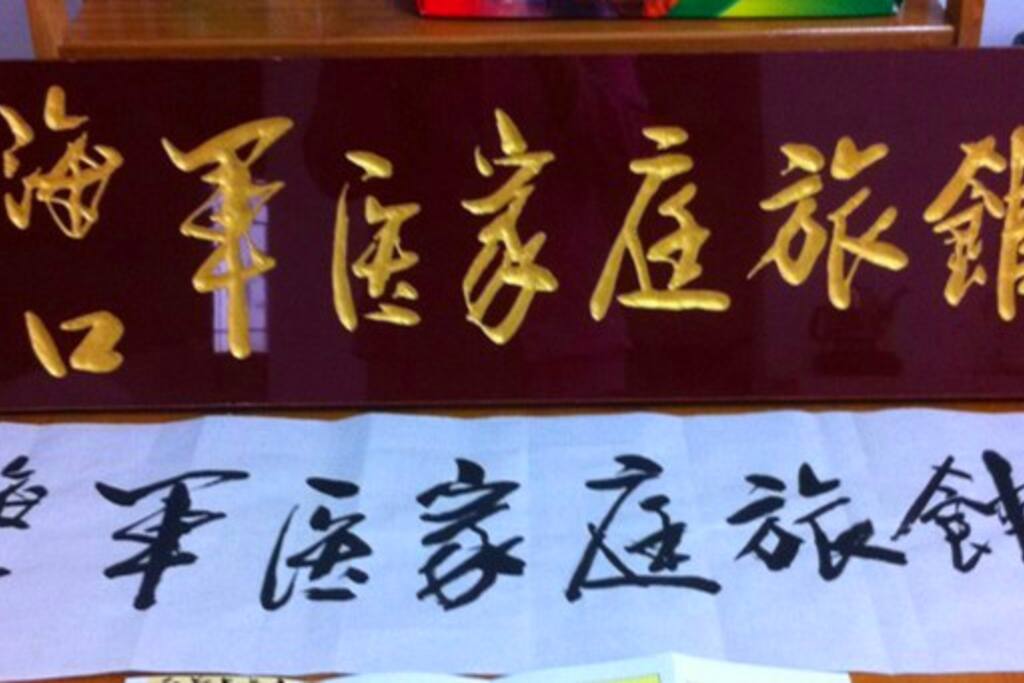 海口軍医家庭旅館
軍医家庭旅